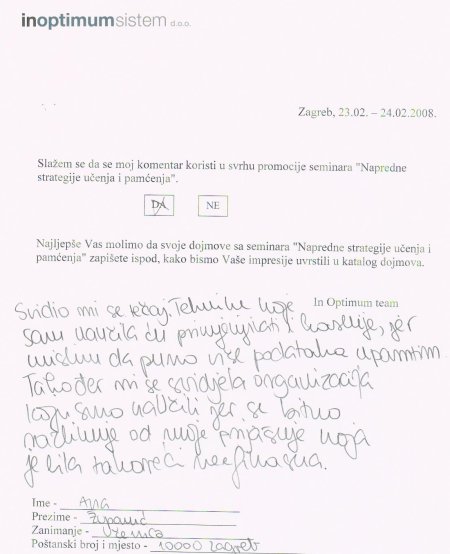 inoptimumsistem d.o.o.
Zagreb, 23.02. – 24.02.2008.
Slažem se da se moj komentar koristi u svrhu promocije seminara "Napredne
strategije učenja i pamćenja".
DA NE
Najljepše Vas molimo da svoje dojmove sa seminara "Napredne strategije učenja i
pamćenja" zapišete ispod, kako bismo Vaše impresije uvrstili u katalog dojmova.
In Optimum team
Svidio mi se tečaj. Tehnike koje
sam naučila ću primjenjivati i kasnije, jer
mislim da puno više podataka upamtim.
Također mi se svidjela organizacija
koju smo naučili jer se bitno
razlikuje od moje prijašnje koja
je bila takoreći neefikasna.
Ime - Ana
Prezime - Županić
Zanimanje - Učenica
Poštanski broj i mjesto - 10000 Zagreb